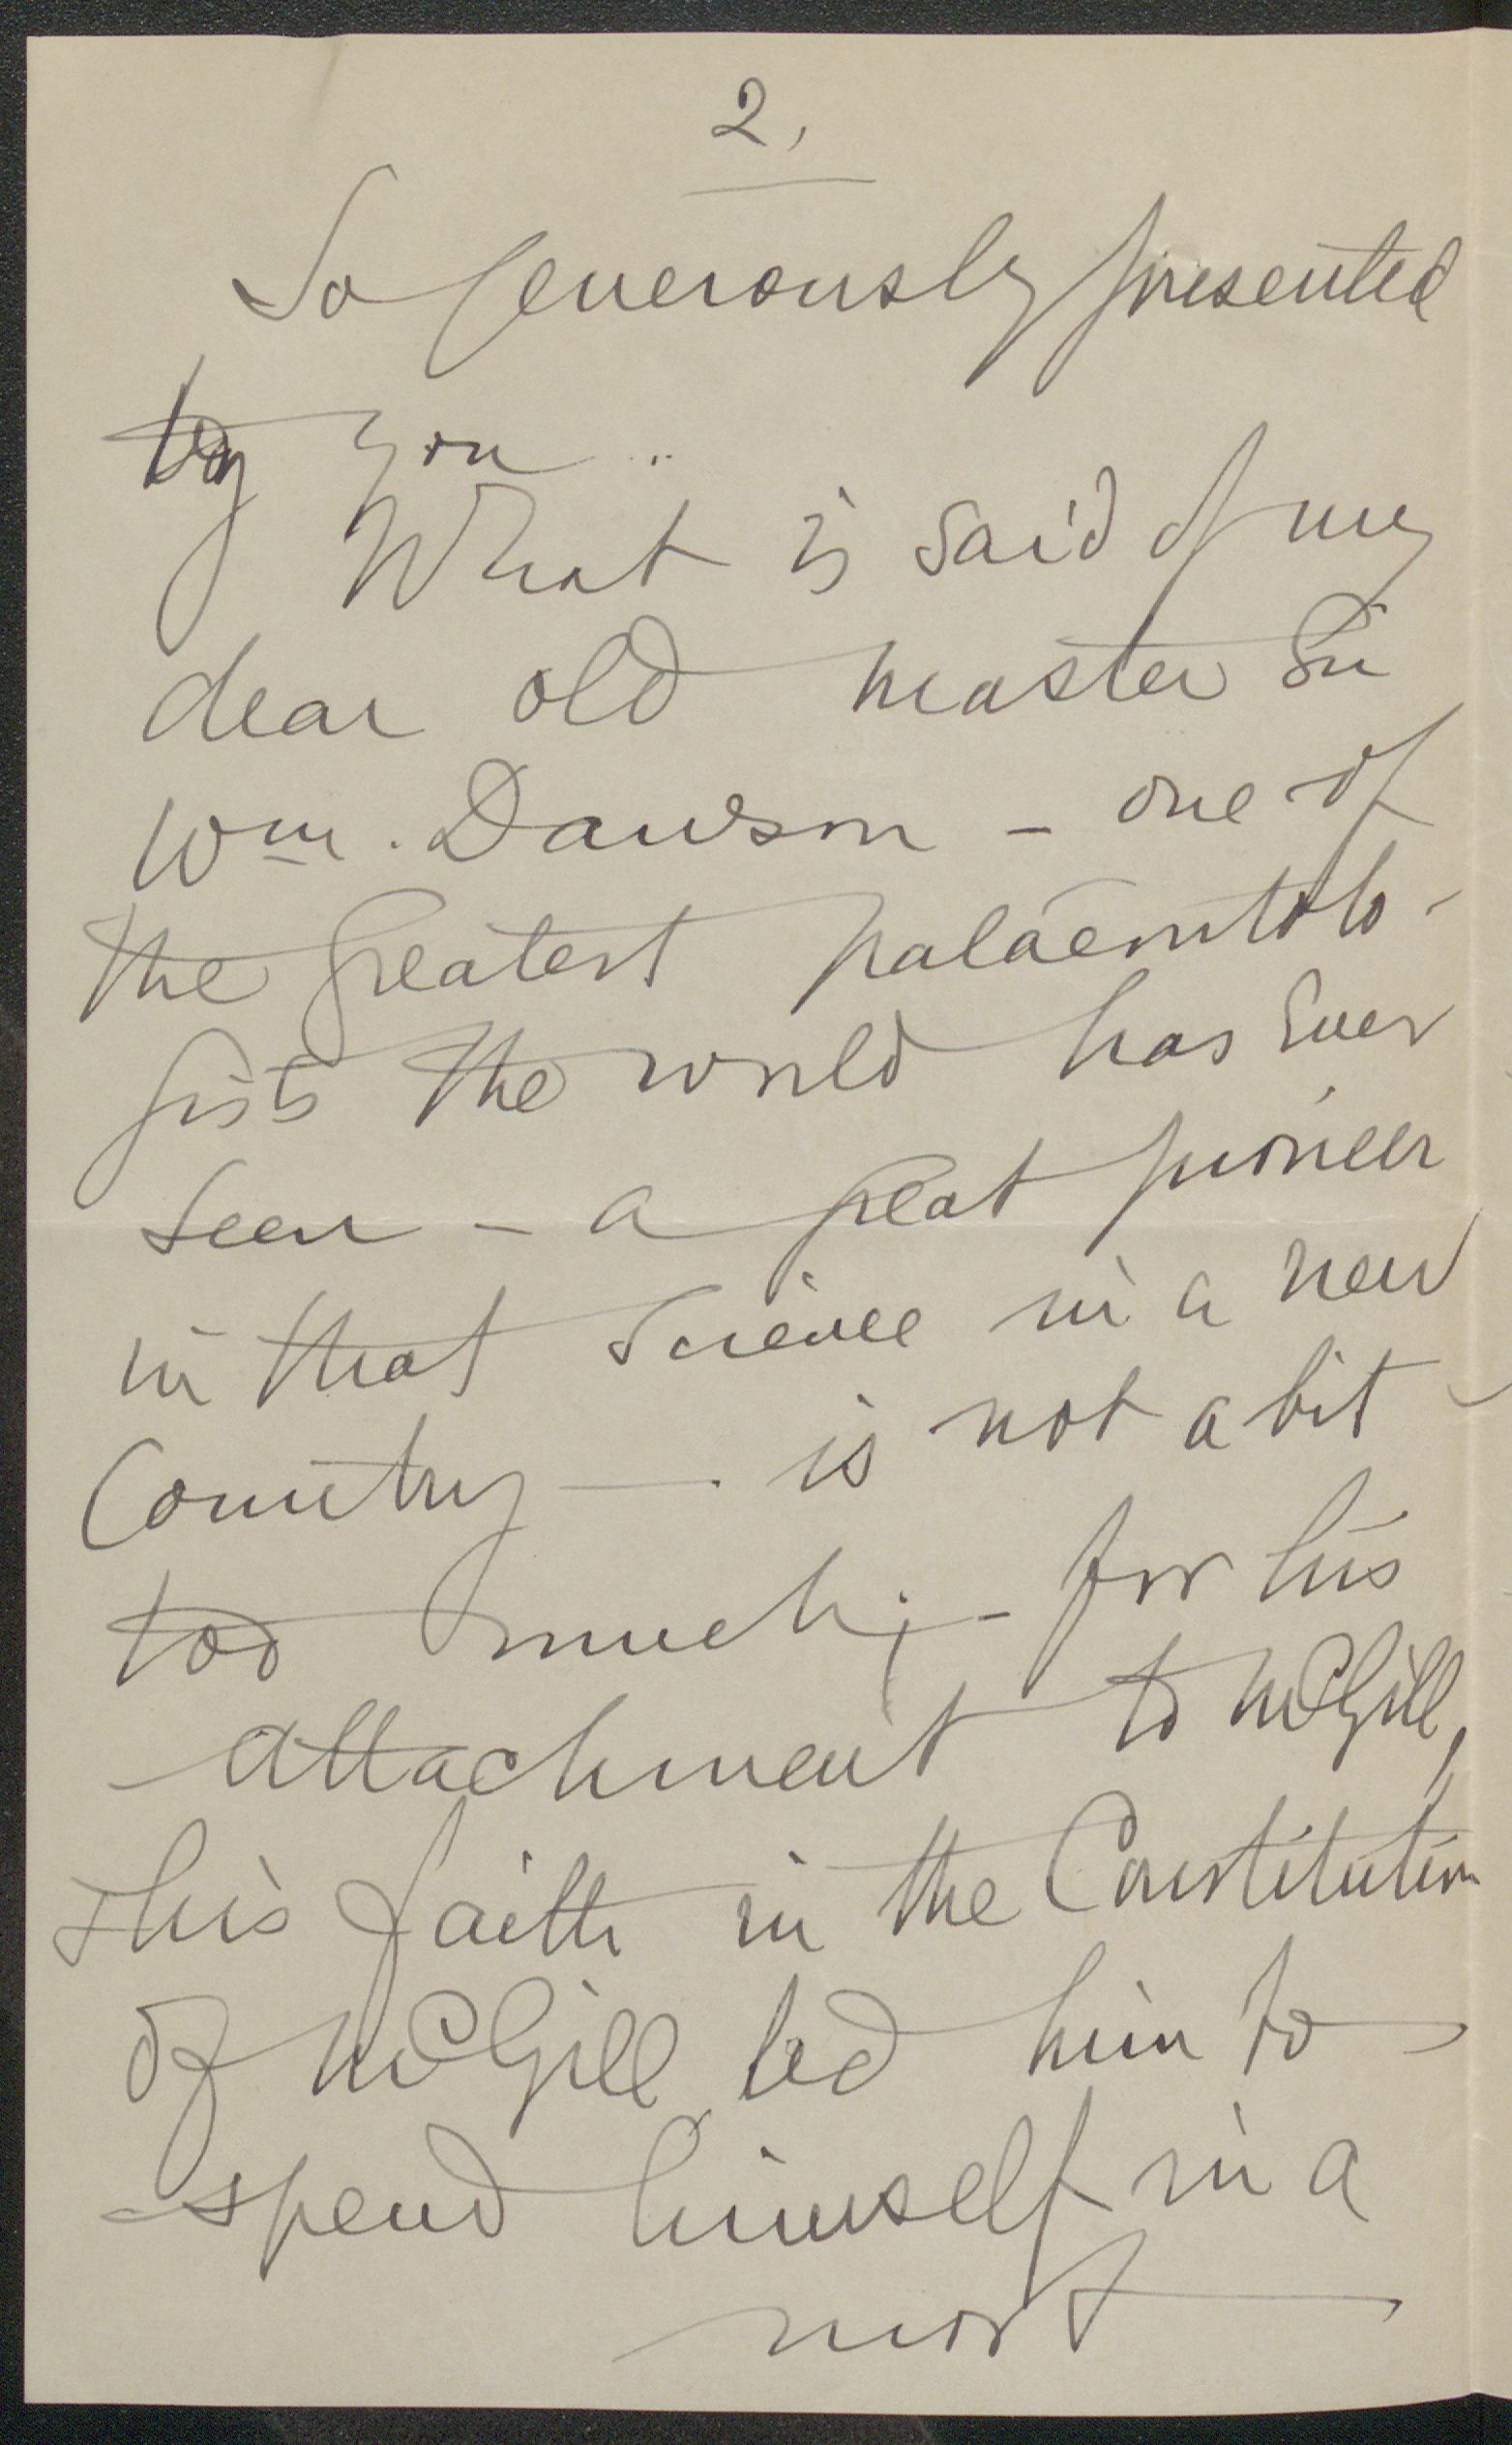 2,
So generously presented
by you ..
What is said of my
dear old master Sir
Wm. Dawson - one of
the greatest palaeontolo-
gists the world has ever
seen - a great pioneer
in that Science in a new
Country - . is not a bit
too much; - for his
attachment to McGill,
& his faith in the Constitution
of McGill led him to
spend himself in a
most